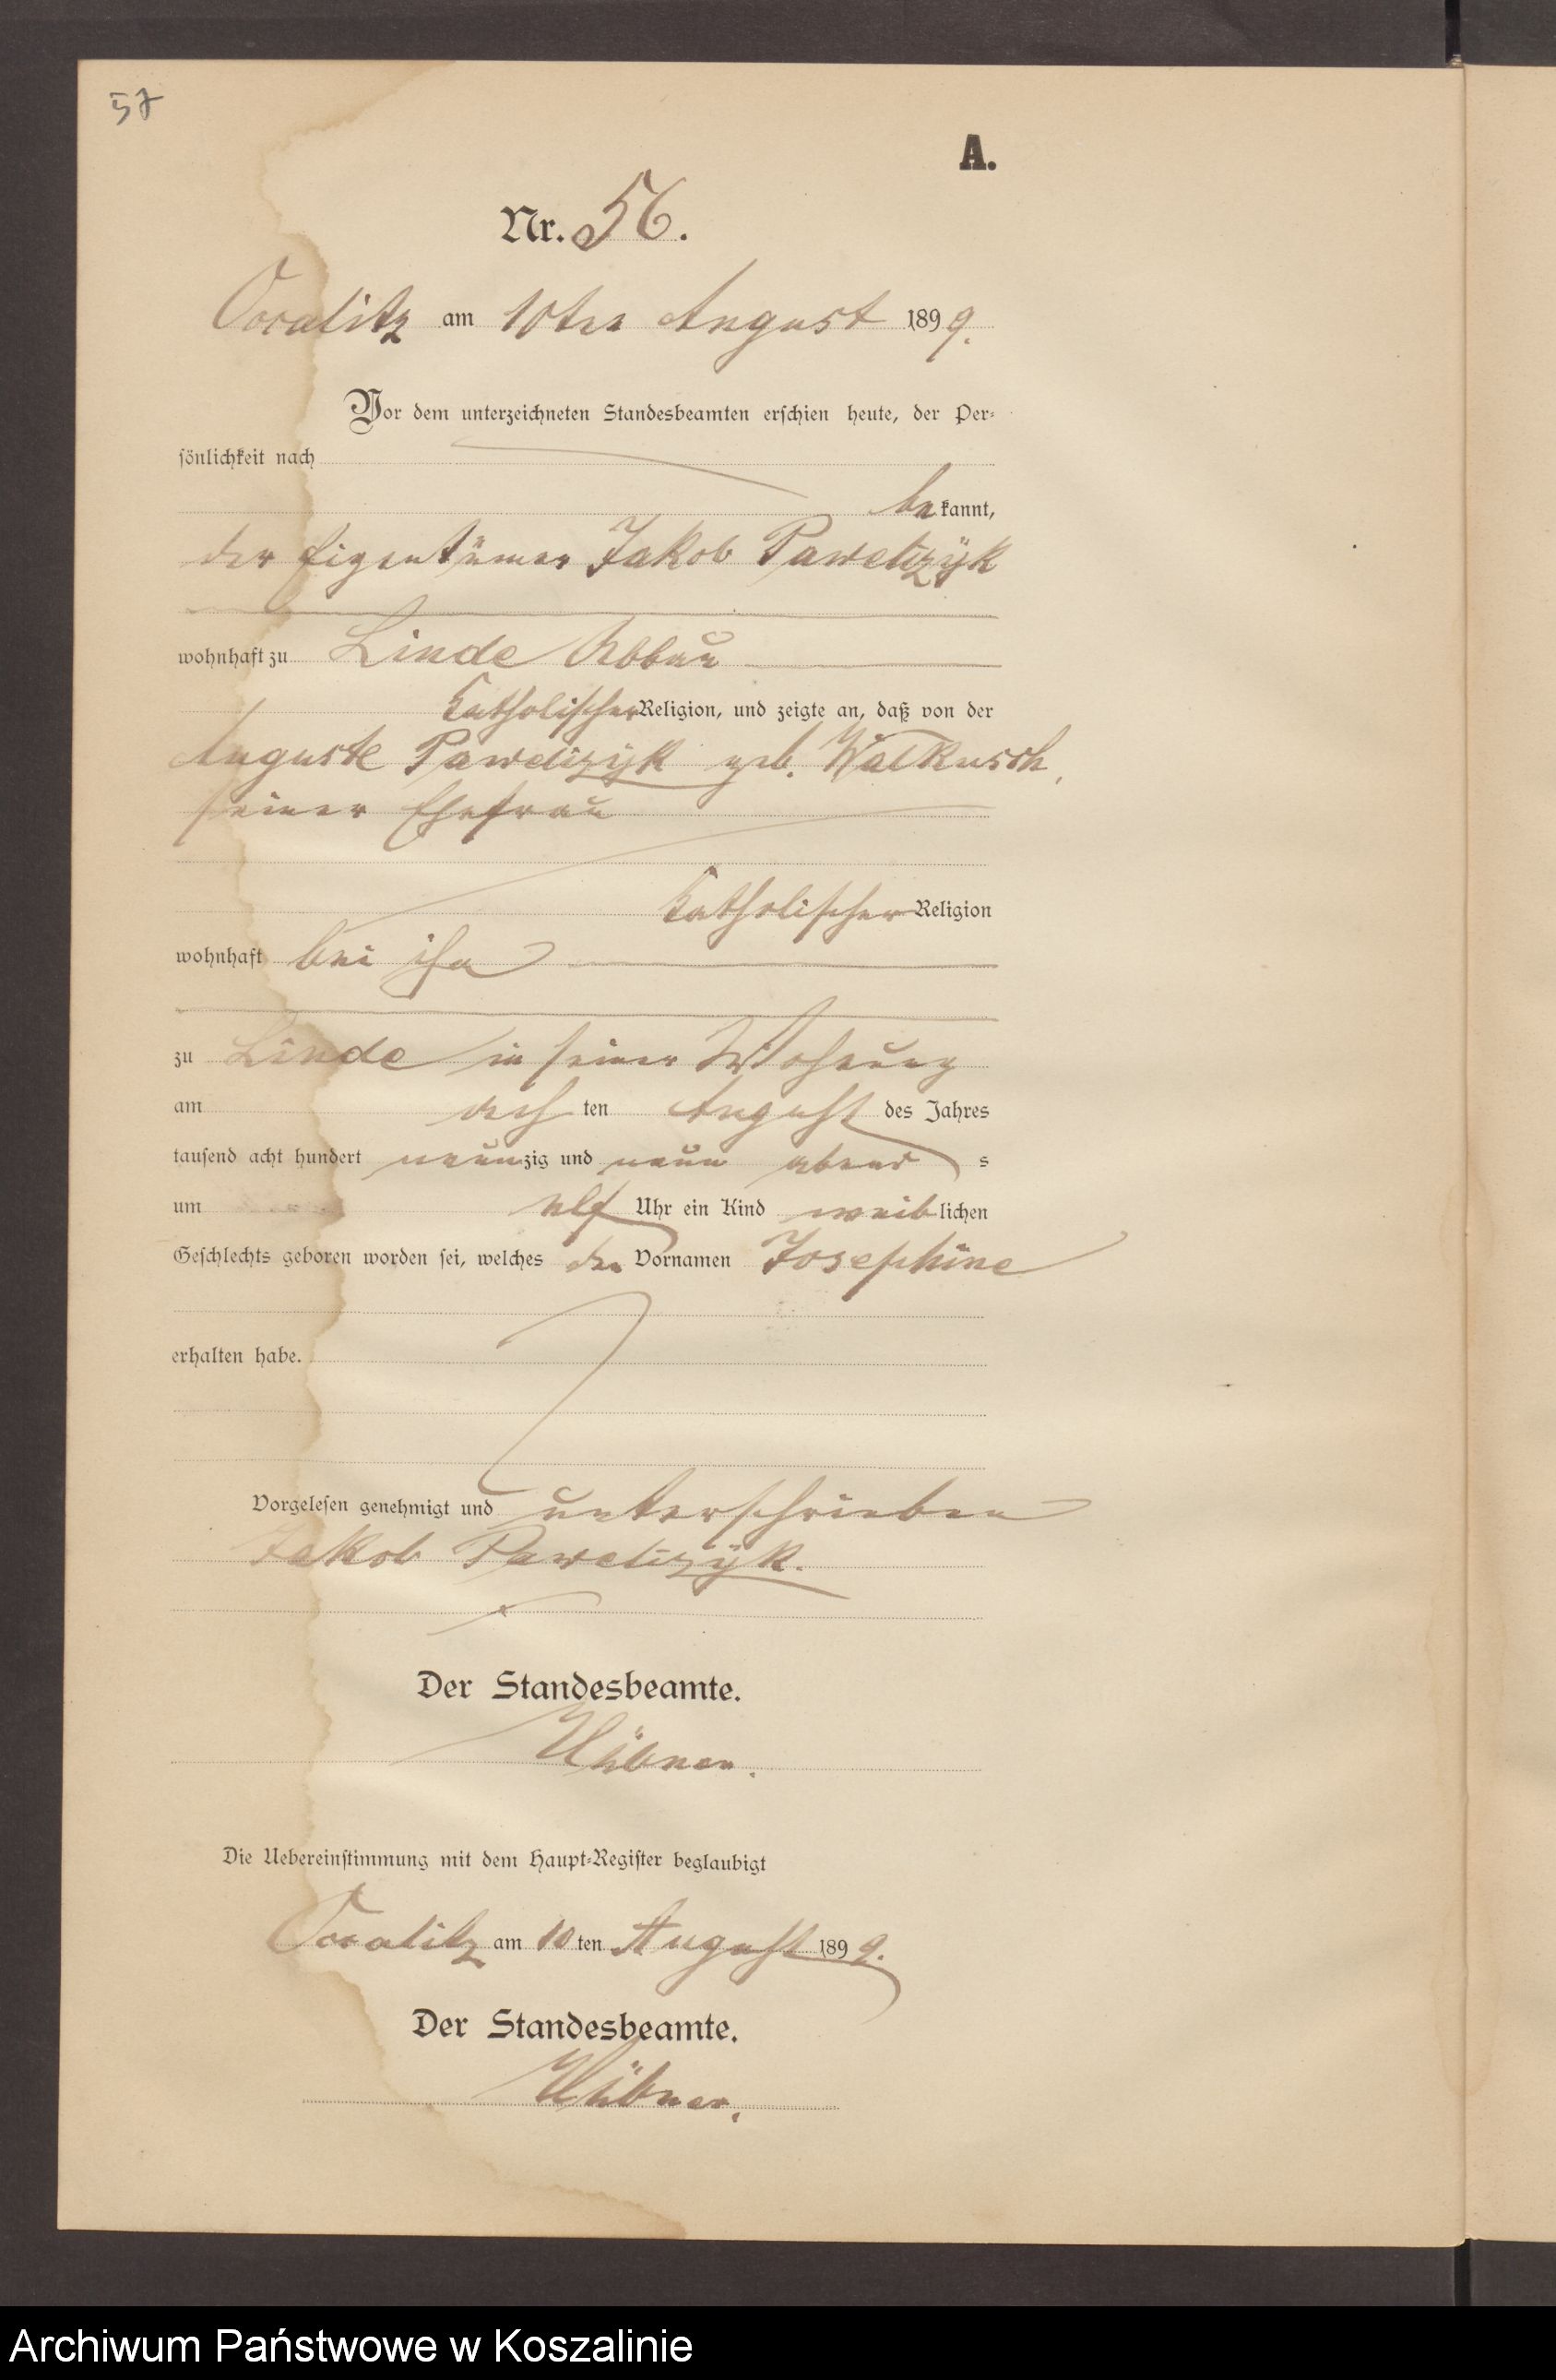 57
A.
Nr. 56.
am 10ten August 1899.
Vor dem unterzeichneten Standesbeamten erschien heute, der Per-
sönlichkeit nach
bekannt,
der Eigentümer Jakob Pawelizÿk
wohnhaft zu Linde Abbau
katholischer Religion, und zeigte an, daß von der
Auguste Pawelizÿk geb. Walkusch,
seiner Ehefrau
katholischer Religion
wohnhaft bei ihm
zu Linde in seiner Wohnung
am achten August des Jahres
tausend acht hundert neunzig und neun abends
um elf Uhr ein Kind weiblichen
Geschlechts geboren worden sei, welches den Vornamen Josephine
erhalten habe.
Vorgelesen genehmigt und unterschrieben
Jakob Pawelizÿk.
Der Standesbeamte.
Hübner.
Die Uebereinstimmung mit dem Haupt-Register beglaubigt
am 10ten August 1899.
Der Standesbeamte.
Hübner.
Archiwum Państwowe w Koszalinie